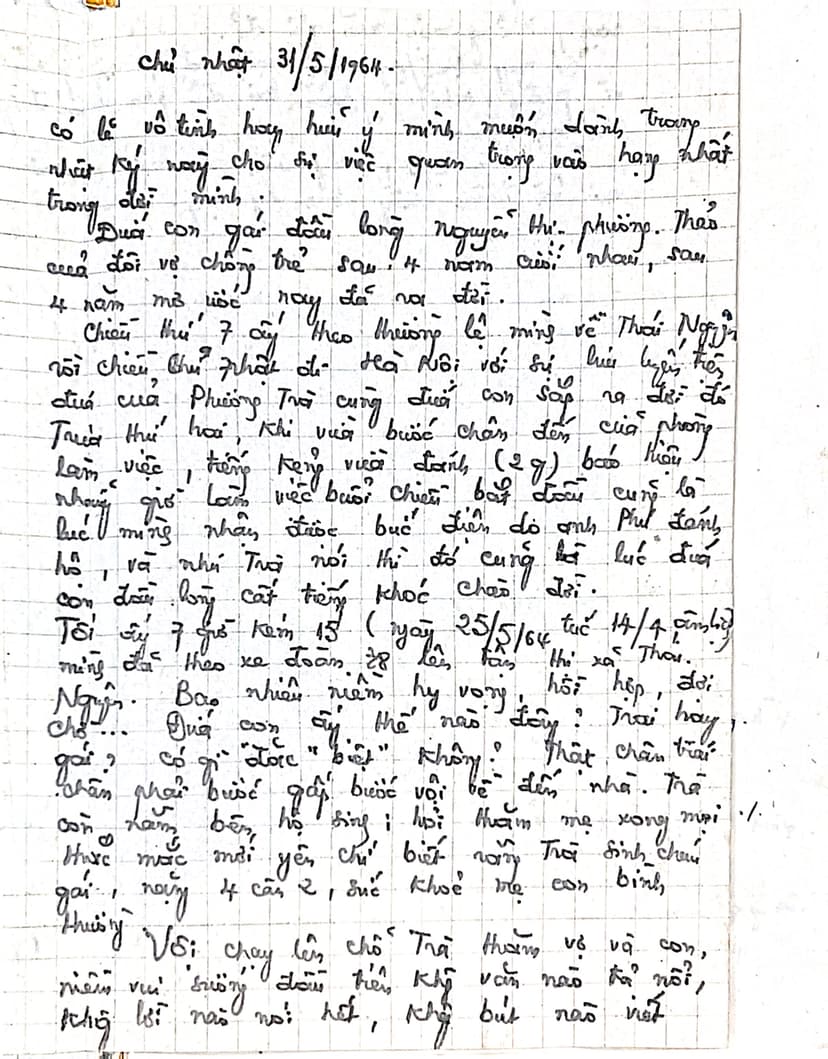 Chủ nhật 31/5/1964.
có lẽ vô tình hay hữu ý mình muốn dành trang
nhật ký này cho sự việc quan trọng vào hạng nhất
trong đời mình.
Đứa con gái đầu lòng Nguyễn Thị Phương Thảo
của đôi vợ chồng trẻ sau 4 năm cưới nhau, sau
4 năm mơ ước nay đã ra đời.
Chiều thứ 7 ấy theo thường lệ mình về Thái Nguyên
rồi chiều Chủ nhật đi Hà Nội với sự lưu luyến tiễn
đưa của Phương Trà cùng đứa con sắp ra đời đó
Trưa thứ hai, khi vừa bước chân đến cửa phòng
làm việc, tiếng kẻng vừa đánh (2g) báo hiệu
những giờ làm việc buổi chiều bắt đầu cũng là
lúc mình nhận được bức điện do anh Phú đánh
hộ, và như Trà nói thì đó cũng là lúc đứa
con đầu lòng cất tiếng khóc chào đời.
Tối ấy 7 giờ kém 15 (ngày 25/5/64 tức 14/4 âm lịch)
mình đã theo xe đoàn 28 lên tận thị xã Thái
Nguyên. Bao nhiêu niềm hy vọng, hồi hộp, đợi
chờ... Đứa con ấy thế nào đây? Trai hay
gái? có gì "đặc biệt" không? Thật chân trái
chân phải bước gấp bước vội về đến nhà. Trà
còn nằm bên hộ sinh; hỏi thăm mẹ xong mọi ./.
thắc mắc mới yên chỉ biết rằng Trà sinh cháu
gái, nặng 4 cân 2, sức khoẻ mẹ con bình
thường
Vội chạy lên chỗ Trà thăm vợ và con,
niềm vui sướng đầu tiên khg văn nào tả nổi,
khg lời nào nói hết, khg bút nào viết